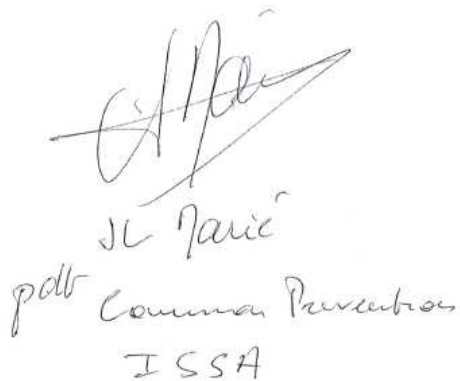 JL Marié
pdt Commission Prevention
ISSA